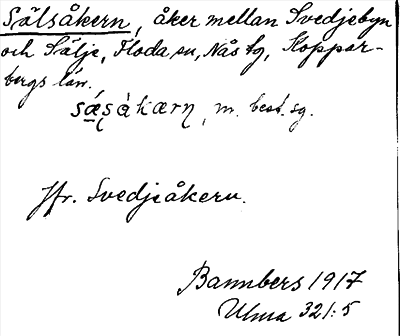 Sälsåkern, åker mellan Svedjebyn
och Sälje, Floda sn, Nås tg, Koppar-
bergs län.
sæ̀sàkæɳ, m. best. sg.
Jfr. Svedjeåkern.
Bannbers 1917
Ulma 321:5